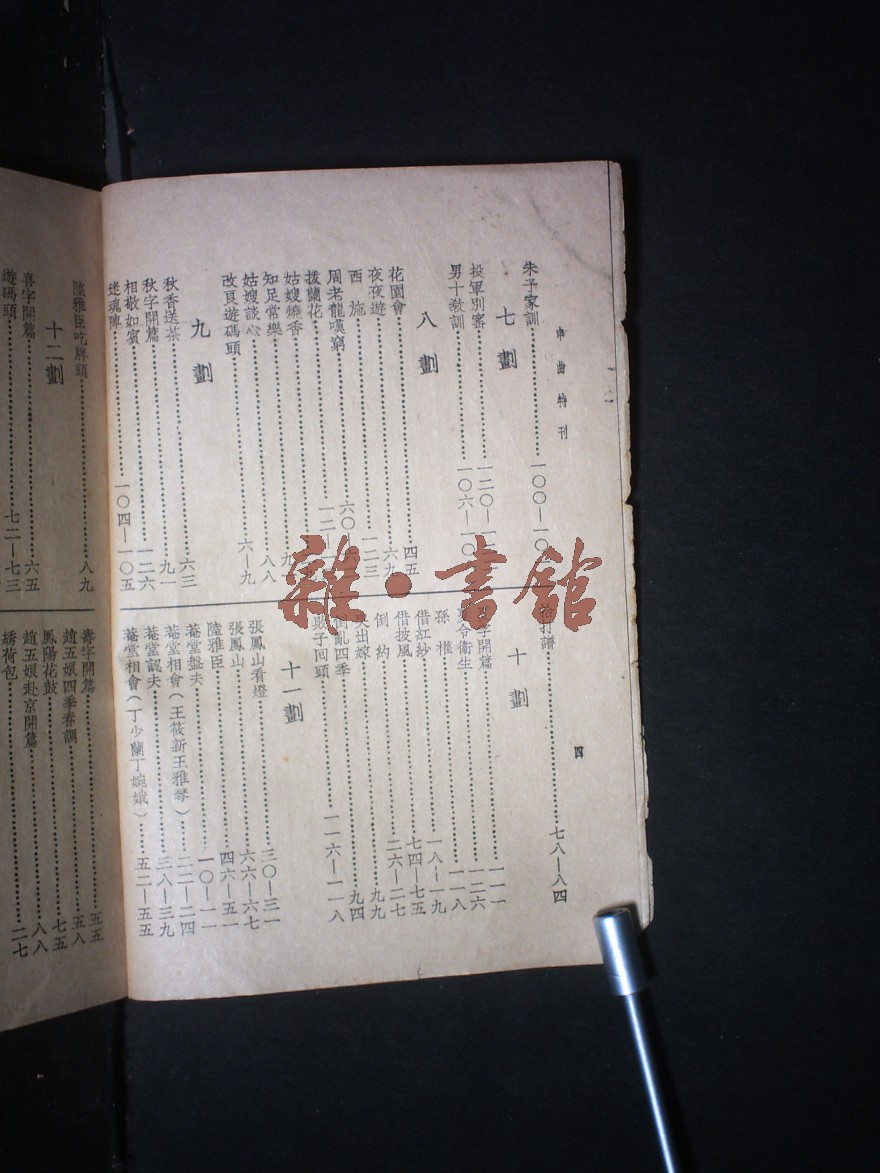 申曲特刊
四
朱子家訓……一〇〇—一〇
七劃
投軍別窰……一二〇—一二
男十教訓……一〇六—一〇
八劃
花園會……四五
夜夜遊……六九
西施……一二三
周老龍嘆窮……六〇
拨蘭花……一二
姑嫂燒香……九
知足常樂……八八
姑嫂談心……六—九
改良遊碼頭
九劃
秋香送茶……六三
秋字開篇……九一
相敬如賓……一二六
迷魂陣……一〇四—一〇五
打譜……七八—八四
十劃
字開篇……一一一
令衞生……一二六
孫權……一一八
借紅紗……一八—一九
借披風……七四—七五
倒約……二六—二七
出嫁……九九
倒亂四季……九四
敗子回頭……一一六—一一八
十一劃
張鳳山看燈……三〇—三一
張鳳山……六六—六七
陸雅臣……四六—五一
菴堂盤夫……一〇—一一
菴堂相會（王筱新王雅琴）……二二—二四
菴堂認夫……三八—三九
菴堂相會（丁少蘭丁婉娥）……五二—五五
陸雅臣吃胖頭……八九
十二劃
喜字開篇……六五
遊碼頭……七二—七三
壽字開篇……五五
趙五娘四季春調……五八
鳳陽花鼓……七五
趙五娘赴京開篇……八八
綉荷包……二七
雜·書舘